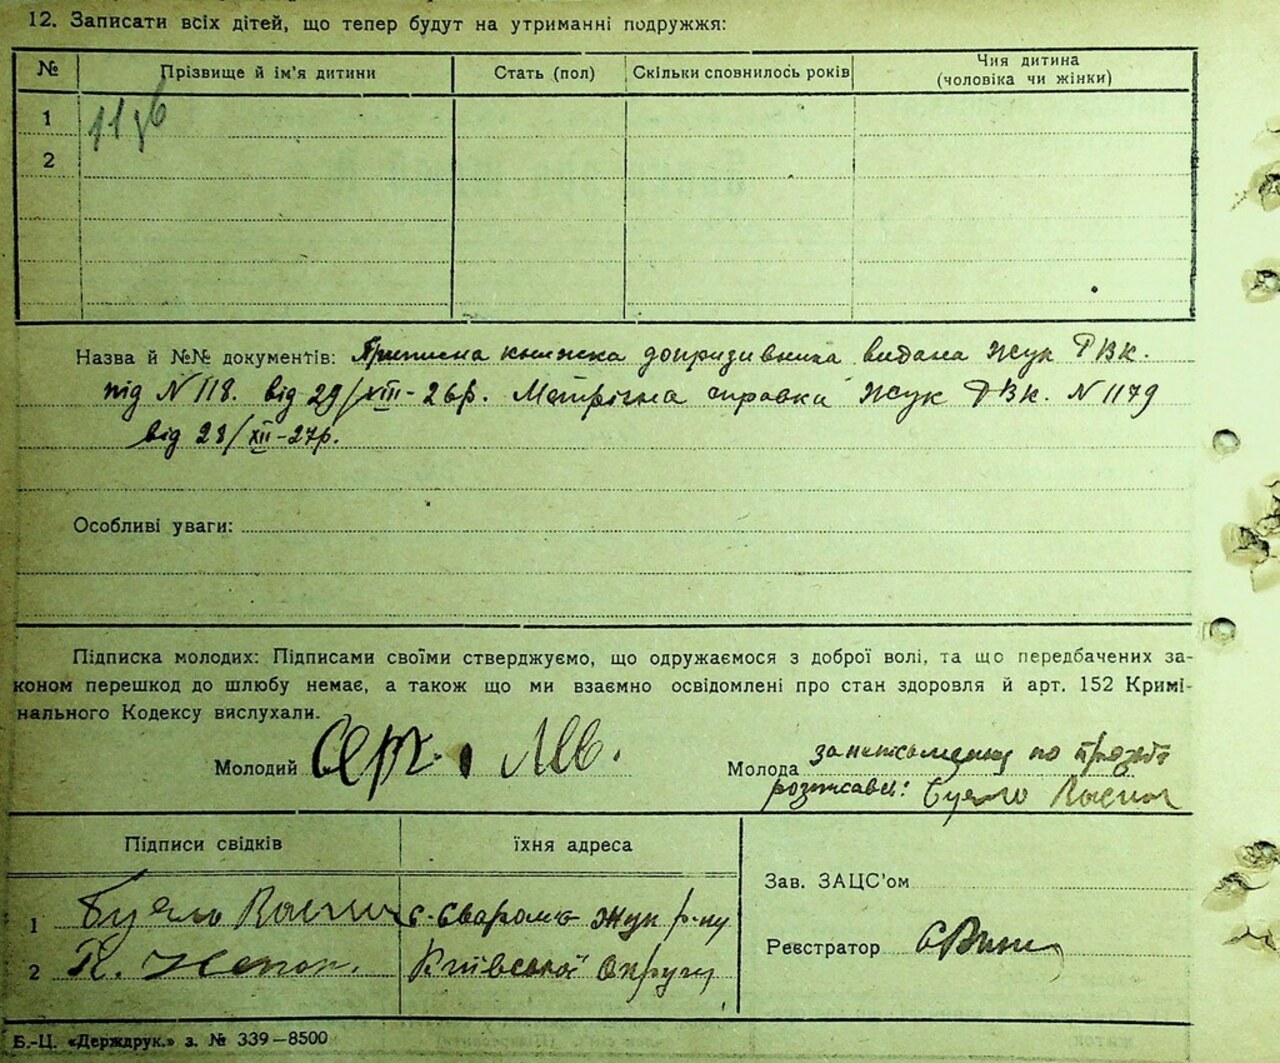 12. Записати всіх дітей, що тепер будут на утриманні подружжя:
№ Прізвище й ім'я дитини Стать (пол) Скільки сповнилось років Чия дитина
(чоловіка чи жінки)
1
2
Назва й №№ документів: Приписна книжка допризивника видана Жук РВК.
під N 118. від 29/XIII-26р. Метрічна справка Жук РВК. N 1179
від 28/XII-27р.
Особливі уваги:
Підписка молодих: Підписами своїми стверджуємо, що одружаємося з доброї волі, та що передбачених за-
коном перешкод до шлюбу немає, а також що ми взаємно освідомлені про стан здоровля й арт. 152 Кримі-
нального Кодексу вислухали.
Молодий
Молода за неписьменну по
Підписи свідків їхня адреса
Зав. ЗАЦС'ом
1 Жук р-ну
Реєстратор
2 Київської Округи
Б.-Ц. «Держдрук.» з. № 339—8500